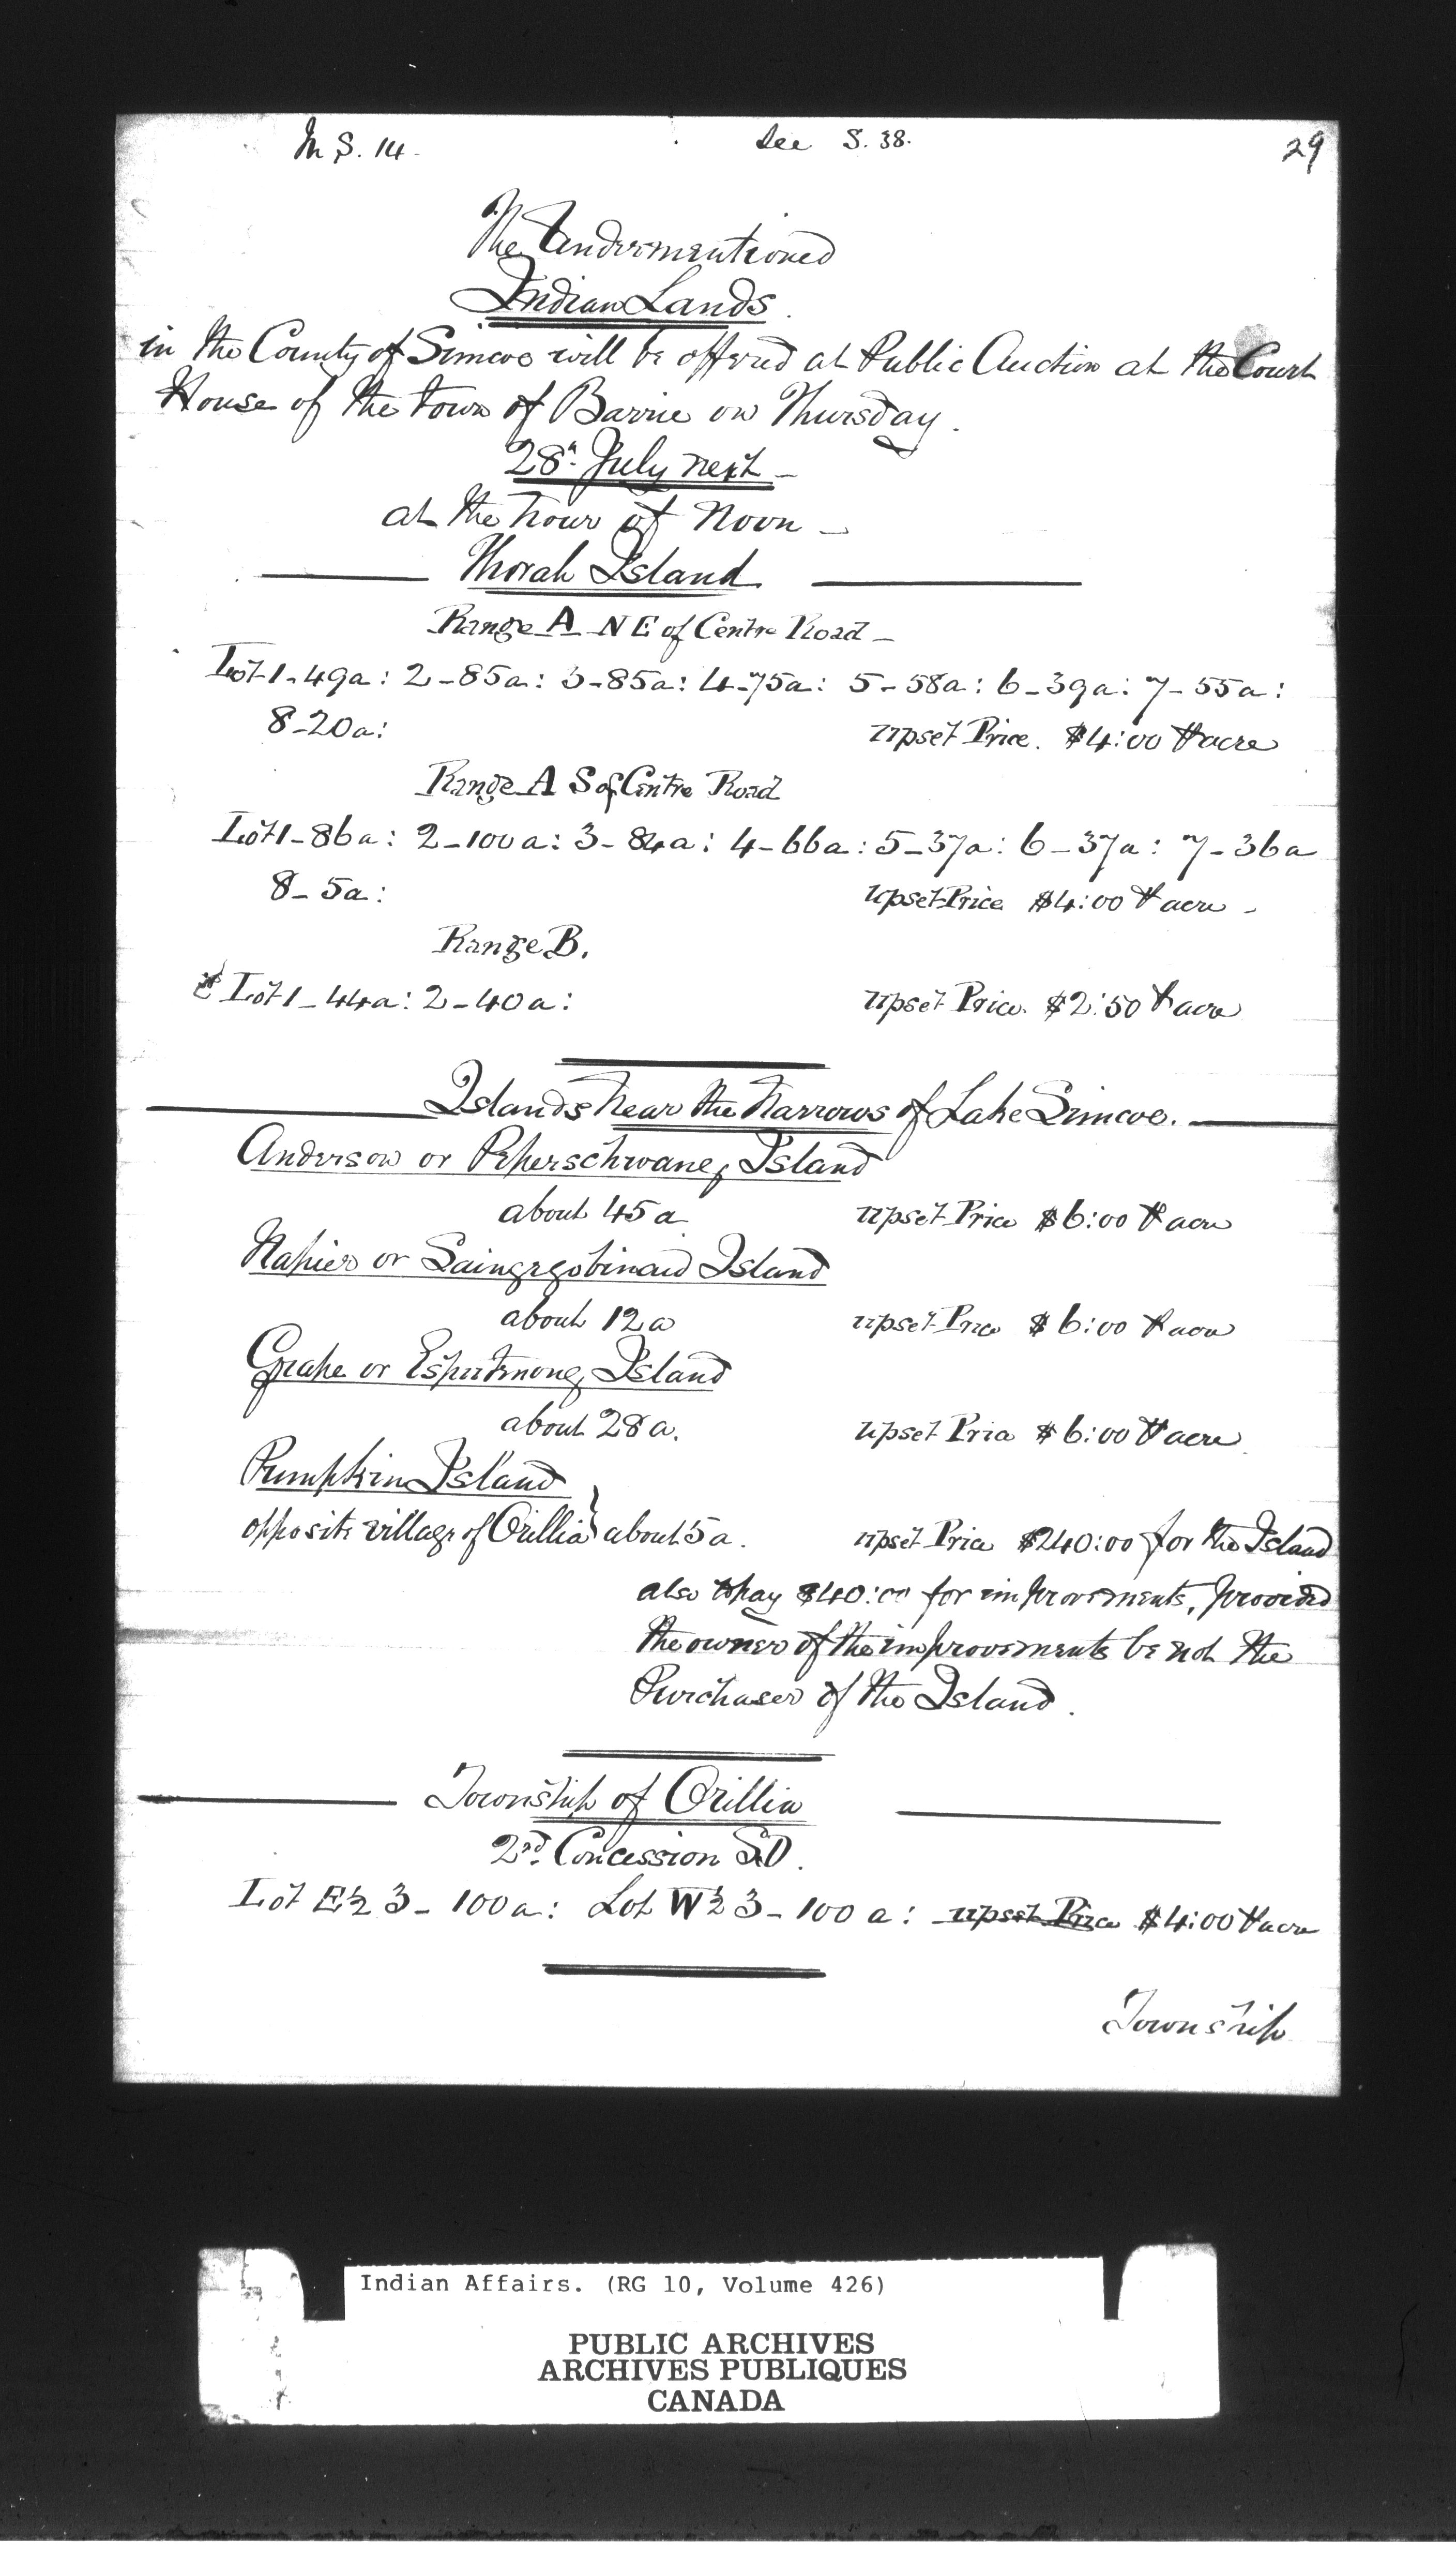 In S. 14. See S. 38. 29
The Undermentioned
Indian Lands.
in the County of Simcoe will be offered at Public Auction at the Court
House of the town of Barrie on Thursday.
28th July next _
at the hour of Noon _
Thorah Island
Range A _ N E of Centre Road _
Lot 1 - 49a: 2 - 85a: 3 - 85a: 4 - 75a: 5 - 58a: 6 - 39a: 7 - 55a:
8 - 20a: upset Price. $4:00 ⅌ acre
Range A S of Centre Road
Lot 1 - 86a: 2 - 100a: 3 - 84a: 4 - 66a: 5 - 37a: 6 - 37a: 7 - 36a
8 - 5a: upset Price $4:00 ⅌ acre -
Range B.
Lot 1 - 44a: 2 - 40a: upset Price. $2:50 ⅌ acre
Islands near the Narrows of Lake Simcoe.
Anderson or Island
about 45a upset Price $6:00 ⅌ acre
Napier or Island
about 12a upset Price $6:00 ⅌ acre
Grape or Island
about 28a. upset Price $6:00 ⅌ acre
Pumpkin Island
opposite village of Orillia } about 5a. upset Price $240:00 for the Island
also to pay $40:00 for improvements, provided
the owner of the improvements be not the
Purchaser of the Island.
Township of Orillia
2nd. Concession S.D.
Lot E½ 3 - 100a: Lot W½ 3 - 100a: upset Price $4:00 ⅌ acre
Township
Indian Affairs. (RG 10, Volume 426)
PUBLIC ARCHIVES
ARCHIVES PUBLIQUES
CANADA